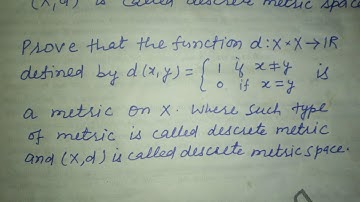 (X,d) is called descrete metric space
Prove that the function d: X×X→IR
defined by d(x,y) = { 1 if x≠y is
0 if x=y
a metric on X. where such type
of metric is called descrete metric
and (X,d) is called descrete metric space.